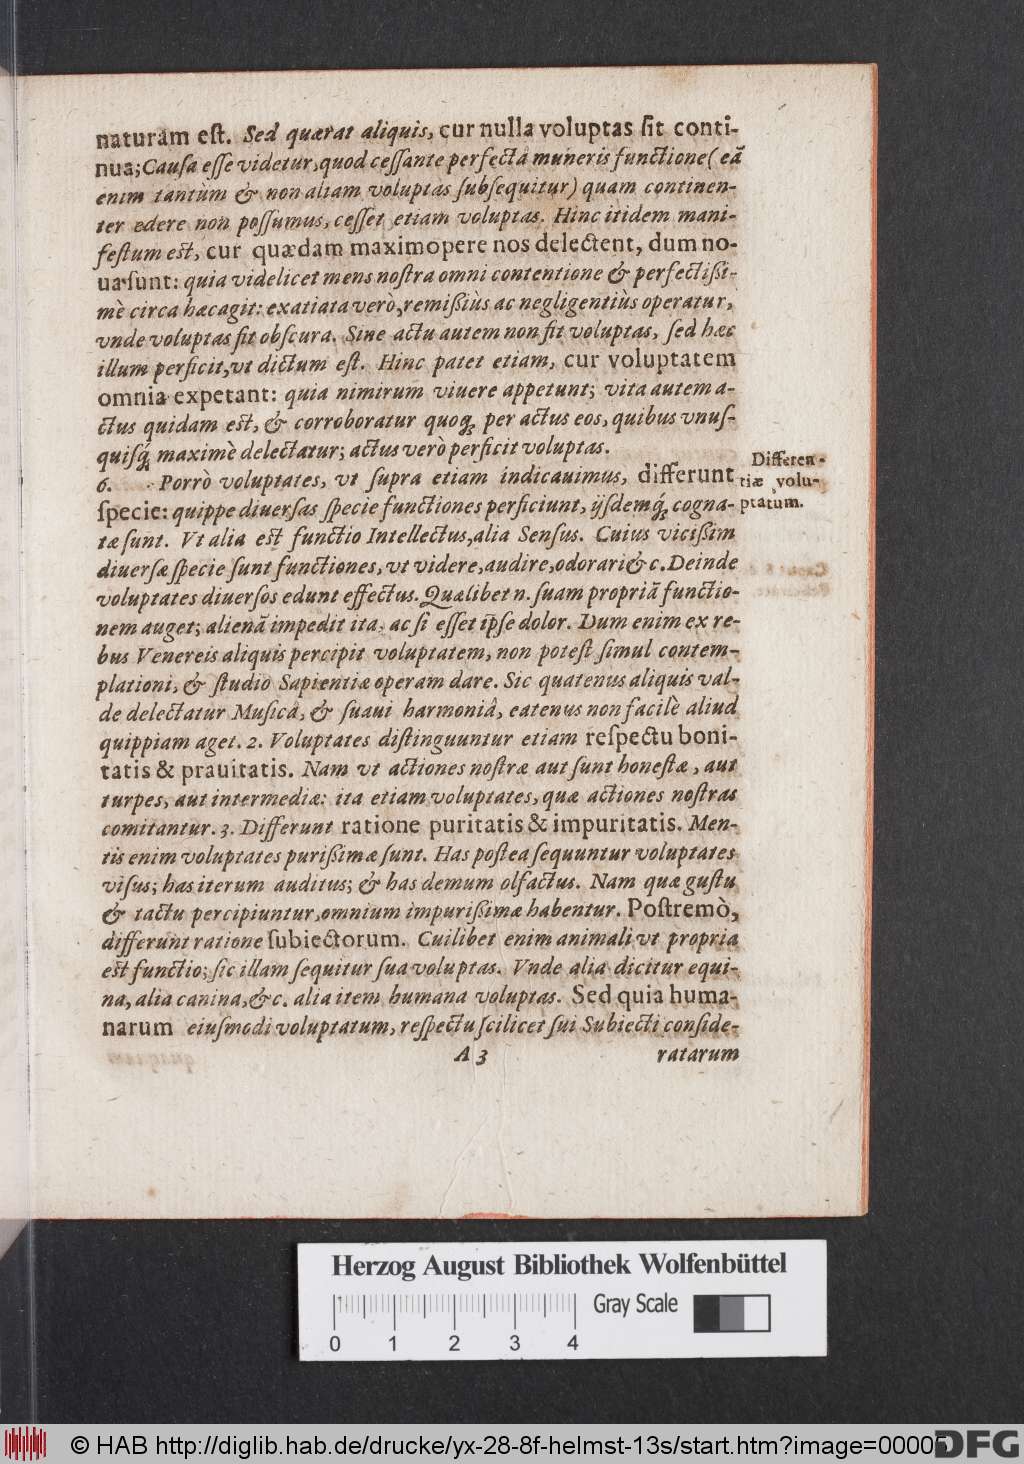 naturam eſt. Sed quærat aliquis, cur nulla voluptas ſit conti-
nua; Cauſa eſſe videtur, quod ceſſante perfecta muneris functione (eā
enim tantùm & non aliam voluptas ſubſequitur) quam continen-
ter edere non poſſumus, ceſſet etiam voluptas. Hinc itidem mani-
feſtum eſt, cur quædam maximopere nos delectent, dum no-
ua ſunt: quia videlicet mens noſtra omni contentione & perfectißi-
mè circa hæc agit: exatiata verò, remißiùs ac negligentiùs operatur,
vnde voluptas fit obſcura. Sine actu autem non fit voluptas, ſed hæc
illum perficit, vt dictum eſt. Hinc patet etiam, cur voluptatem
omnia expetant: quia nimirum viuere appetunt; vita autem a-
ctus quidam eſt, & corroboratur quoq; per actus eos, quibus vnuſ-
quiſq; maximè delectatur; actus verò perficit voluptas.
6. Porrò voluptates, vt ſupra etiam indicauimus, differunt
ſpecie: quippe diuerſas ſpecie functiones perficiunt, ijſdemq; cogna-
tæ ſunt. Vt alia eſt functio Intellectus, alia Senſus. Cuius vicißim
diuerſæ ſpecie ſunt functiones, vt videre, audire, odorari &c. Deinde
voluptates diuerſos edunt effectus. Quælibet n. ſuam propriā functio-
nem auget; alienā impedit ita, ac ſi eſſet ip̄ſe dolor. Dum enim ex re-
bus Venereis aliquis percipit voluptatem, non poteſt ſimul contem-
plationi, & ſtudio Sapientiæ operam dare. Sic quatenus aliquis val-
de delectatur Muſicâ, & ſuaui harmoniâ, eatenus non facilè aliud
quippiam aget. 2. Voluptates diſtinguuntur etiam reſpectu boni-
tatis & prauitatis. Nam vt actiones noſtræ aut ſunt honeſtæ, aut
turpes, aut intermediæ: ita etiam voluptates, quæ actiones noſtras
comitantur. 3. Differunt ratione puritatis & impuritatis. Men-
tis enim voluptates purißimæ ſunt. Has poſtea ſequuntur voluptates
viſus; has iterum auditus; & has demum olfactus. Nam quæ guſtu
& tactu percipiuntur, omnium impurißimæ habentur. Poſtremò,
differunt ratione ſubiectorum. Cuilibet enim animali vt propria
eſt functio; ſic illam ſequitur ſua voluptas. Vnde alia dicitur equi-
na, alia canina, &c. alia item humana voluptas. Sed quia huma-
narum eiuſmodi voluptatum, reſpectu ſcilicet ſui Subiecti conſide-
A 3 ratarum
Differen-
tiæ volu-
ptatum.
Herzog August Bibliothek Wolfenbüttel
Gray Scale
0 1 2 3 4
© HAB http://diglib.hab.de/drucke/yx-28-8f-helmst-13s/start.htm?image=00005
DFG